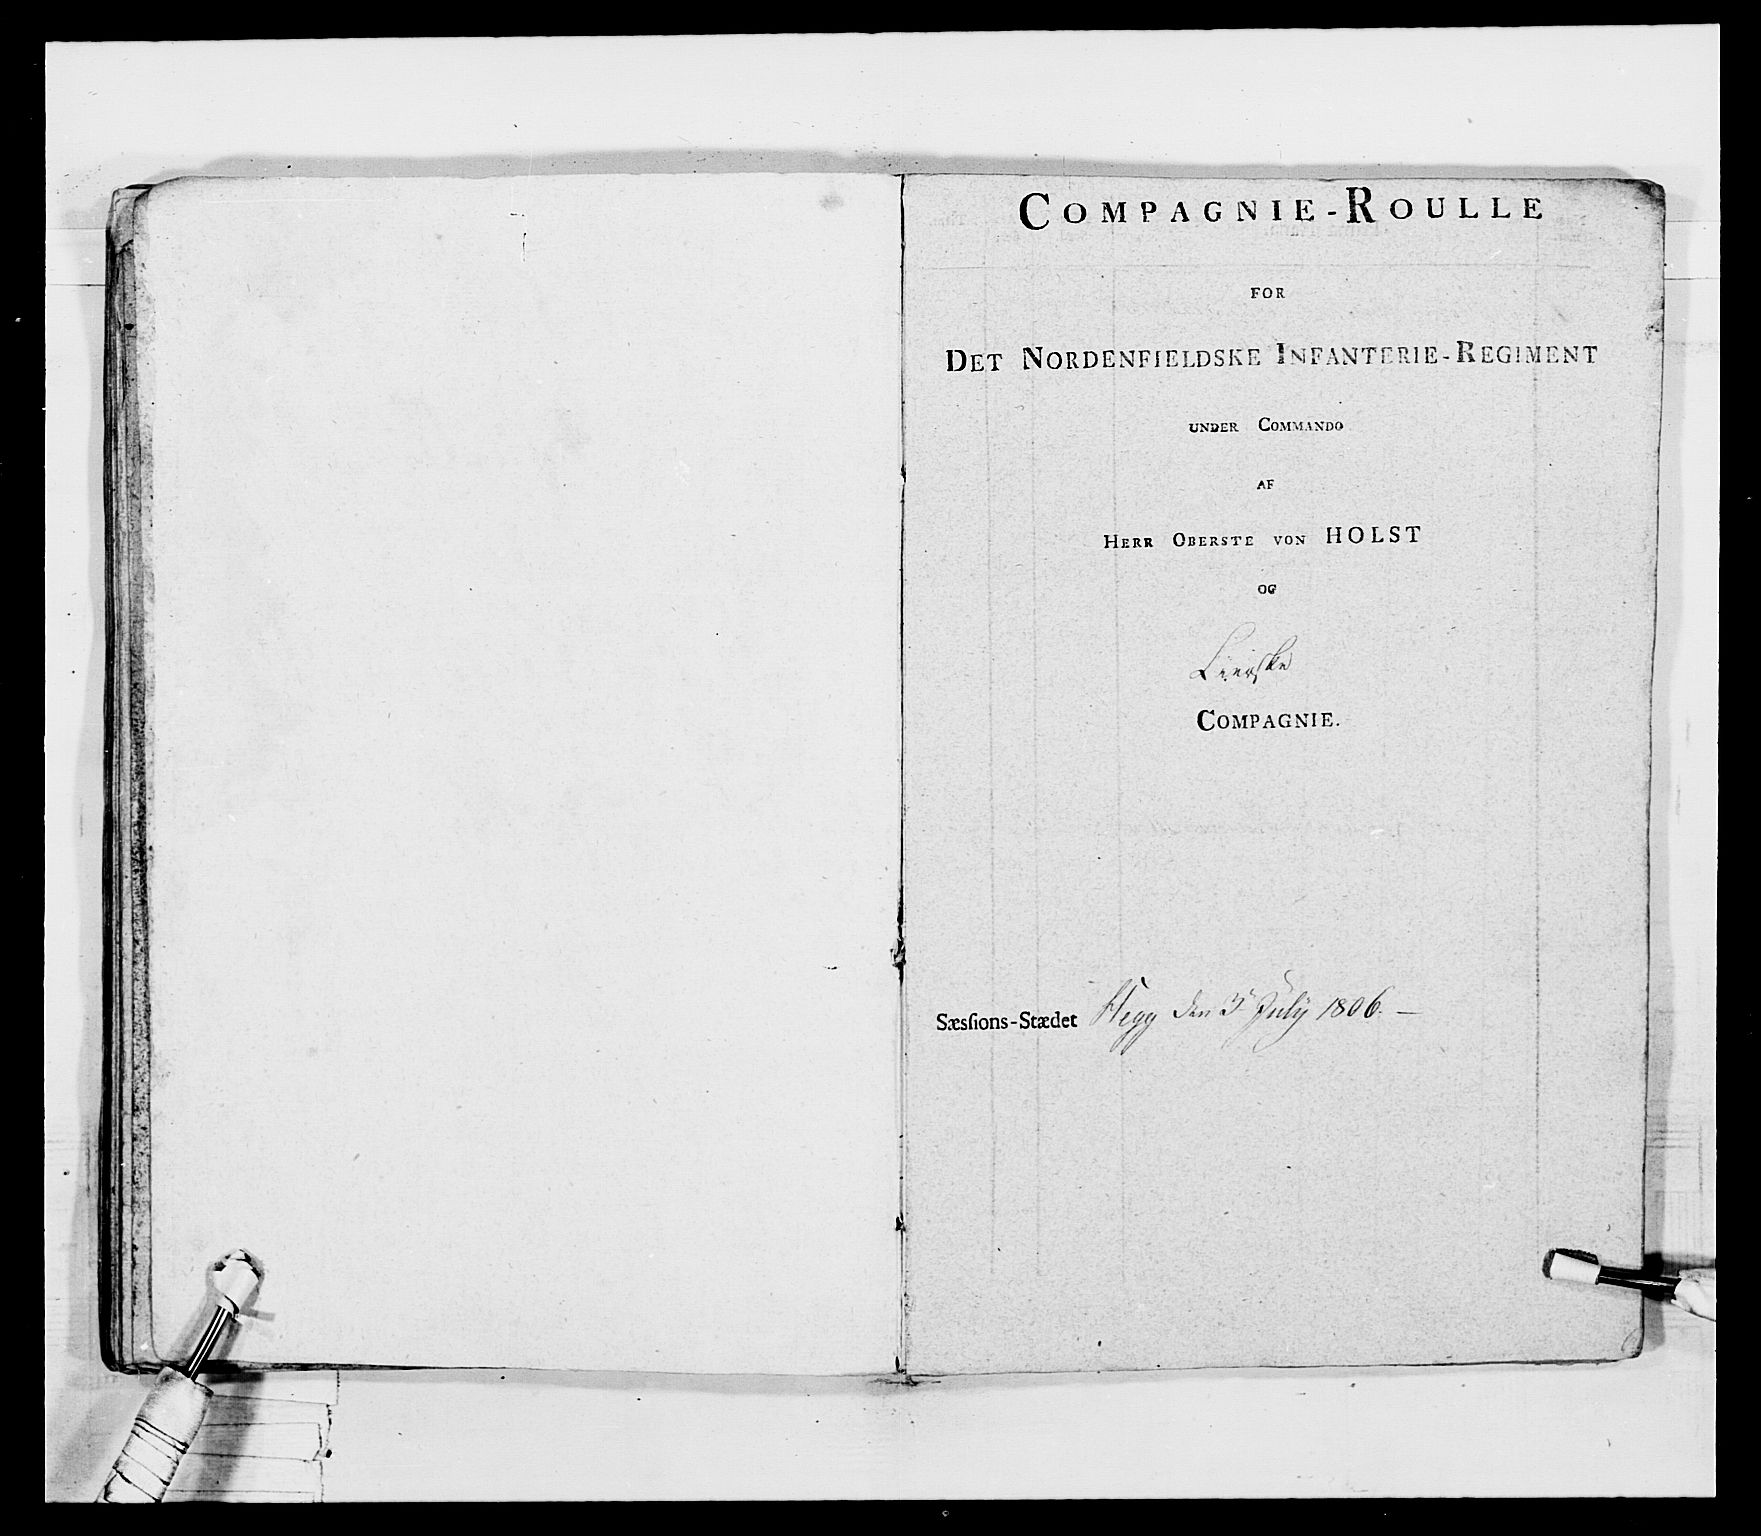 COMPAGNIE-ROULLE
FOR
DET NORDENFIELDSKE INFANTERIE-REGIMENT
UNDER COMMANDO
AF
HERR OBERSTE VON HOLST
OG
Lierske
COMPAGNIE.
Sæsſions-Stædet Hegg den 3 July 1806. —